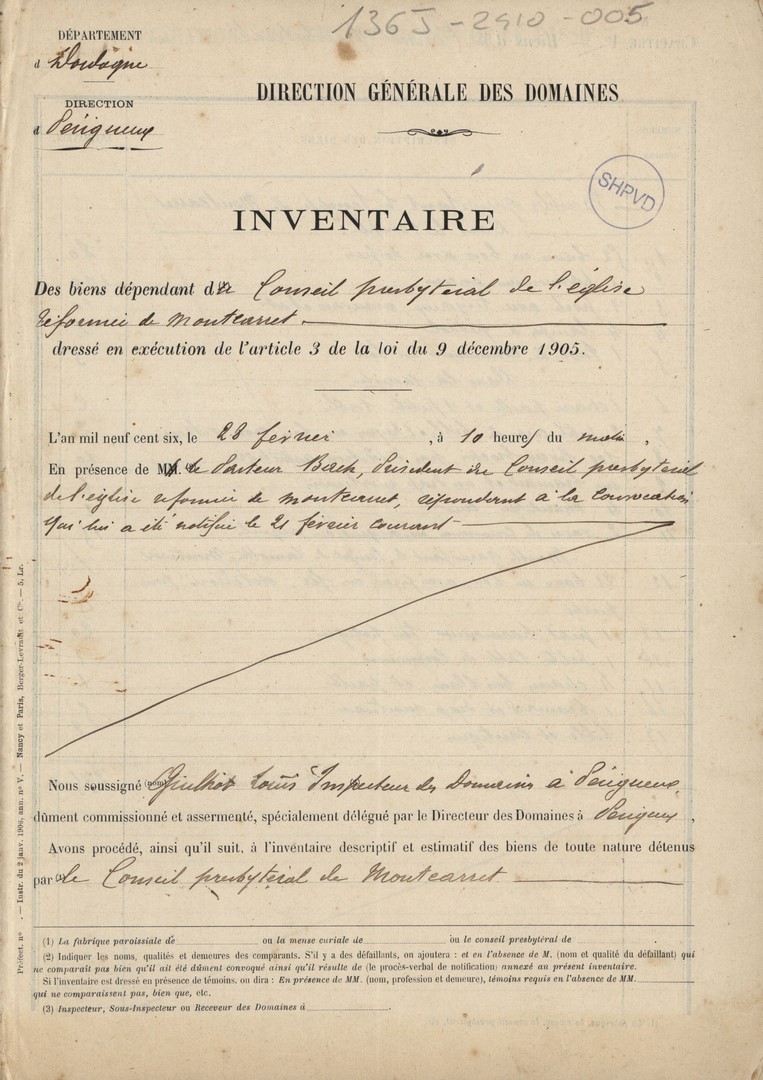 136J-2910-005
DÉPARTEMENT
d Dordogne
DIRECTION
d Périgueux
DIRECTION GÉNÉRALE DES DOMAINES
SHPVD
INVENTAIRE
Des biens dépendant du Conseil presbytéral de l'église
réformée de Montcarret
dressé en exécution de l'article 3 de la loi du 9 décembre 1905.
L'an mil neuf cent six, le 28 février, à 10 heures du matin,
En présence de M. le Pasteur, Président du Conseil presbytéral
de l'église réformée de Montcarret, répondant à la convocation
qui lui a été notifiée le 21 février courant
Nous soussigné (nom) Louis Inspecteur des Domaines à Périgueux,
dûment commissionné et assermenté, spécialement délégué par le Directeur des Domaines à Périgueux,
Avons procédé, ainsi qu'il suit, à l'inventaire descriptif et estimatif des biens de toute nature détenus
par le Conseil presbytéral de Montcarret
(1) La fabrique paroissiale de ou la mense curiale de ou le conseil presbytéral de .
(2) Indiquer les noms, qualités et demeures des comparants. S'il y a des défaillants, on ajoutera : et en l'absence de M. (nom et qualité du défaillant) qui
ne comparaît pas bien qu'il ait été dûment convoqué ainsi qu'il résulte de (le procès-verbal de notification) annexé au présent inventaire.
Si l'inventaire est dressé en présence de témoins, on dira : En présence de MM. (nom, profession et demeure), témoins requis en l'absence de MM.
qui ne comparaissent pas, bien que, etc.
(3) Inspecteur, Sous-Inspecteur ou Receveur des Domaines à
Préfect. n° . — Instr. du 2 janv. 1906, ann. n° V. — Nancy et Paris, Berger-Levrault et Cie. — 5, Lc.